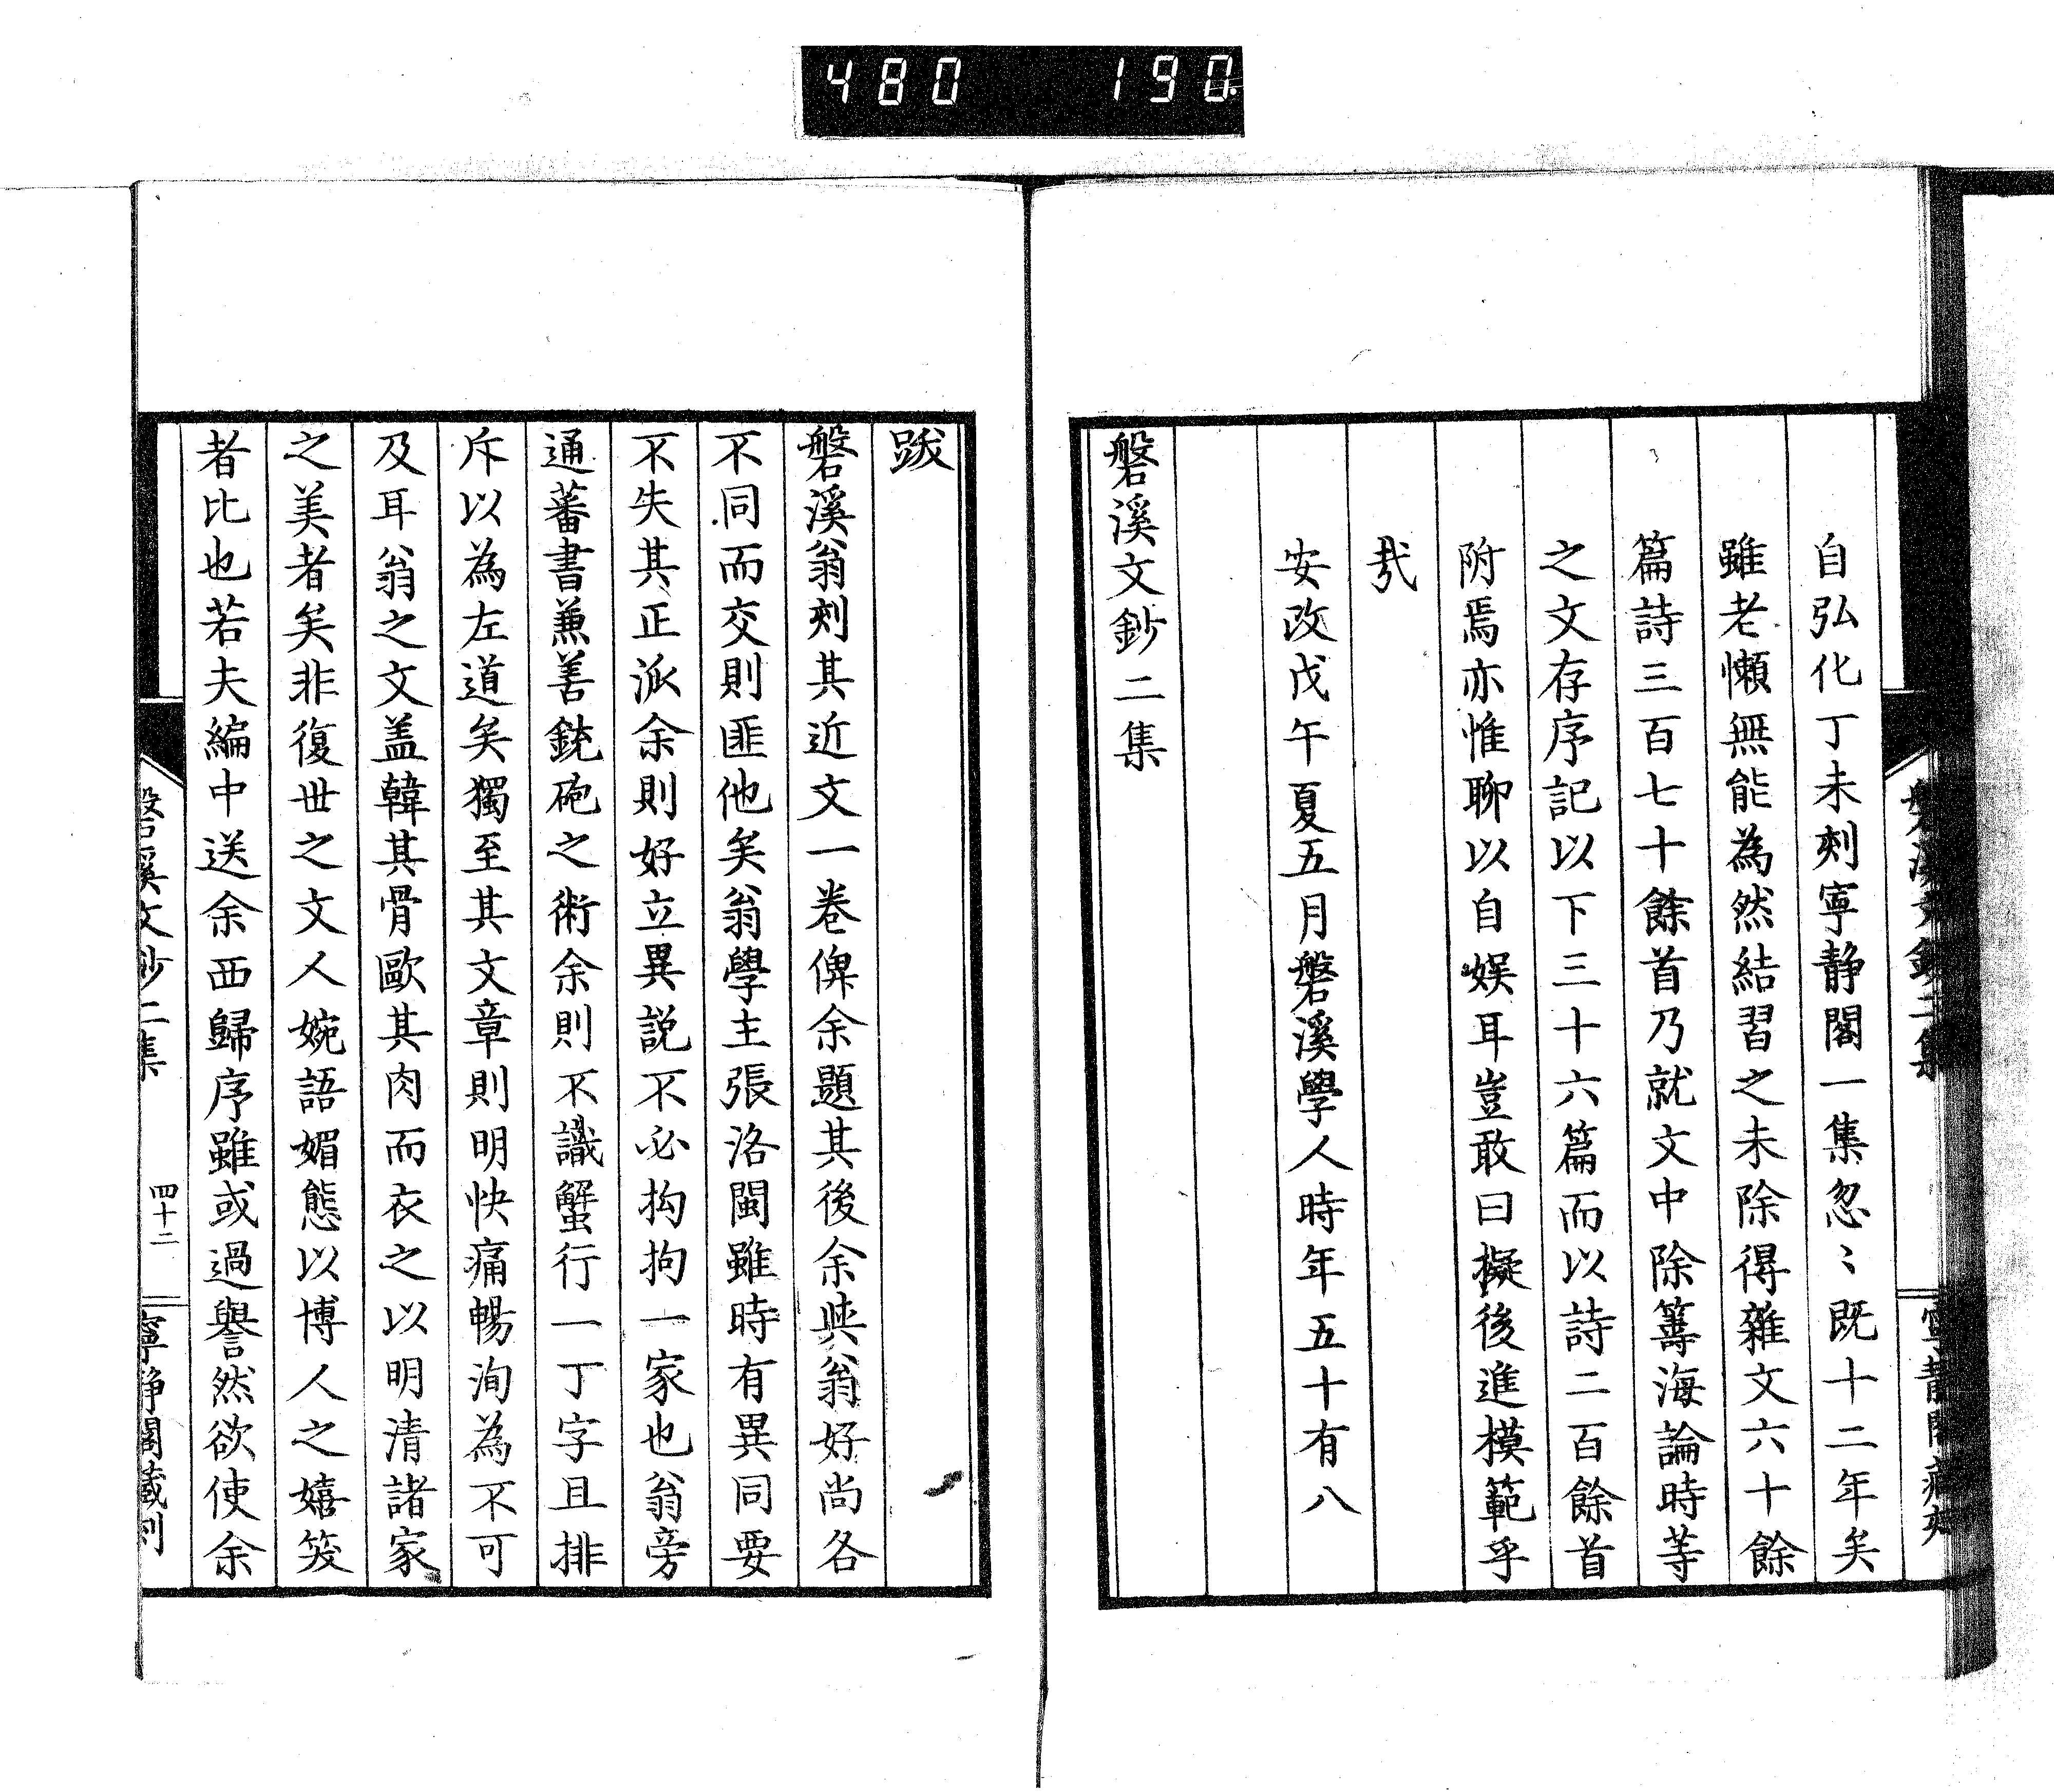 480 190.
自弘化丁未刻寧静閣一集忽〻既十二年矣
雖老懶無能為然結習之未除得雜文六十餘
篇詩三百七十餘首乃就文中除籌海論時等
之文存序記以下三十六篇而以詩二百餘首
附焉亦惟聊以自娛耳豈敢曰擬後進模範乎
㢤
安政戊午夏五月磐溪學人時年五十有八
磐溪文鈔二集
跋
磐溪翁刻其近文一卷俾余題其後余與翁好尚各
不同而交則匪他矣翁學主張洛閩雖時有異同要
不失其正派余則好立異説不必拘拘一家也翁旁
通蕃書兼善銃砲之術余則不識蟹行一丁字且排
斥以為左道矣獨至其文章則明快痛暢洵為不可
及耳翁之文盖韓其骨歐其肉而衣之以明清諸家
之美者矣非復世之文人婉語媚態以博人之嬉笑
者比也若夫編中送余西歸序雖或過譽然欲使余
磐溪文鈔二集
四十二
寧静閣藏刻